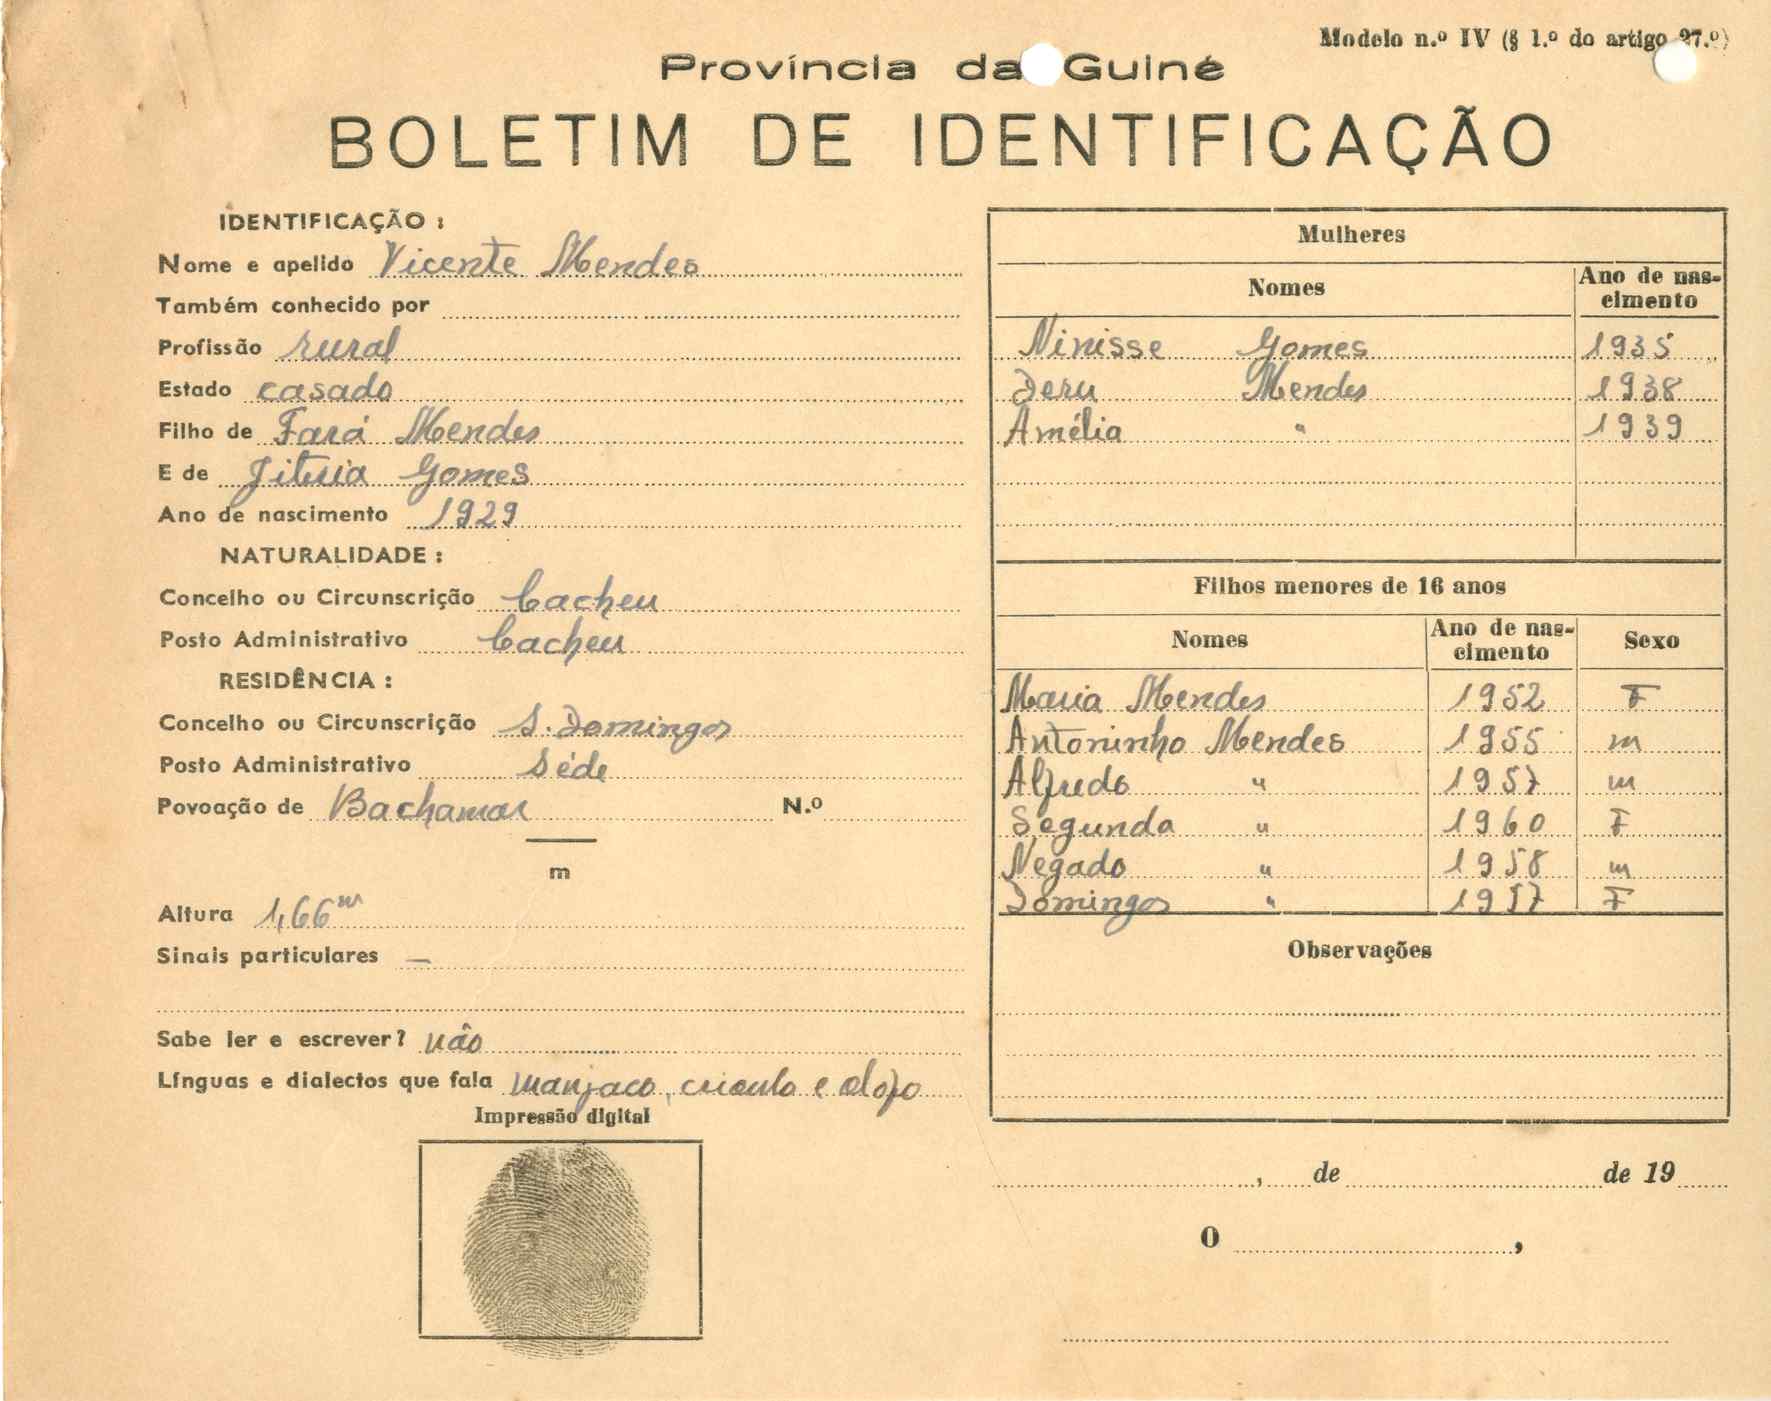 Modelo n.º IV (§ 1.º do artigo 27.º)
Província da Guiné
BOLETIM DE IDENTIFICAÇÃO
IDENTIFICAÇÃO :
Nome e apelido Vicente Mendes
Também conhecido por
Profissão rural
Estado casado
Filho de Fará Mendes
E de Gomes
Ano de nascimento 1929
NATURALIDADE :
Concelho ou Circunscrição Cacheu
Posto Administrativo Cacheu
RESIDÊNCIA :
Concelho ou Circunscrição S. Domingos
Posto Administrativo Séde
Povoação de Bachamar N.º
m
Altura 1,66m
Sinais particulares —
Sabe ler e escrever? não
Línguas e dialectos que fala manjaco, crioulo e olofo
Impressão digital
Mulheres
Nomes Ano de nas-
cimento
Ninisse Gomes 1935
Deru Mendes 1938
Amélia " 1939
Filhos menores de 16 anos
Nomes Ano de nas-
cimento Sexo
Maria Mendes 1952 F
Antoninho Mendes 1955 m
Alfredo " 1957 m
Segunda " 1960 F
Negado " 1958 m
Domingos " 1957 F
Observações
, de de 19
O ,